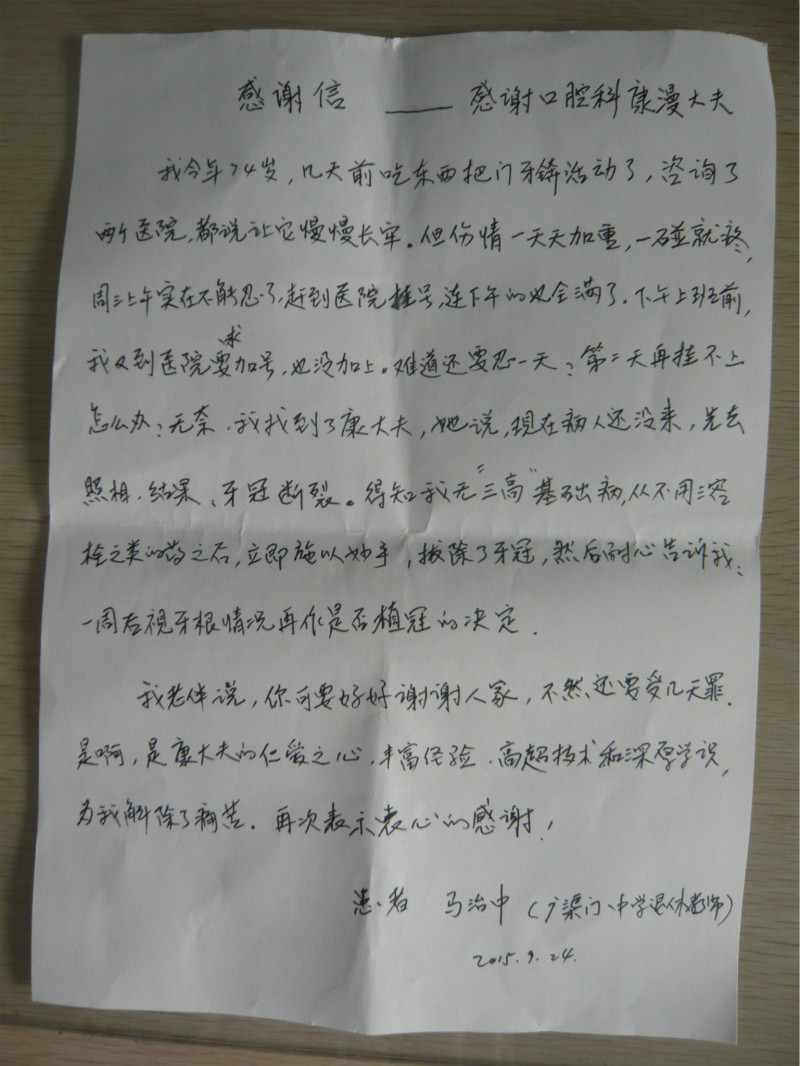 感谢信 —— 感谢口腔科康漫大夫
我今年74岁，几天前吃东西把门牙硌活动了，咨询了
两个医院，都说让它慢慢长牢。但伤情一天天加重，一碰就疼，
周三上午实在不能忍了，赶到医院挂号，连下午的也全满了。下午上班前，
我又到医院要求加号，也没加上。难道还要忍一天？第二天再挂不上
怎么办？无奈，我找到了康大夫，她说，现在病人还没来，先去
照相，结果，牙冠断裂。得知我无“三高”基础病，从不用溶
栓之类的药之后，立即施以妙手，拔除了牙冠，然后耐心告诉我：
一周后视牙根情况再作是否植冠的决定。
我老伴说，你可要好好谢谢人家，不然还要受几天罪。
是啊，是康大夫的仁爱之心，丰富经验，高超技术和深厚学识，
为我解除了病苦。再次表示衷心的感谢！
患者 马治中（广渠门中学退休教师）
2015.9.24.